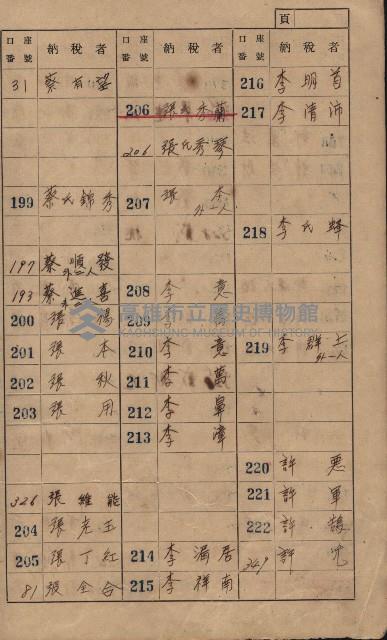 頁
口座番號 納稅者
31 蔡有望
199 蔡氏錦秀
197 蔡順發 外一人
193 蔡進喜
200 張
201 張本
202 張秋
203 張用
326 張維能
204 張老王
205 張丁紅
81 張全合
口座番號 納稅者
206 張氏秀蘭
206 張氏秀琴
207 張本 外一人
208 李意
209
210 李意
211 李萬
212 李
213 李漳
214 李濁居
215 李祥南
口座番號 納稅者
216 李明首
217 李清沛
218 李氏蜂
219 李群 外一人
220 許惡
221 許軍
222 許鵠
349 許
高雄市立歷史博物館
KAOHSIUNG MUSEUM OF HISTORY